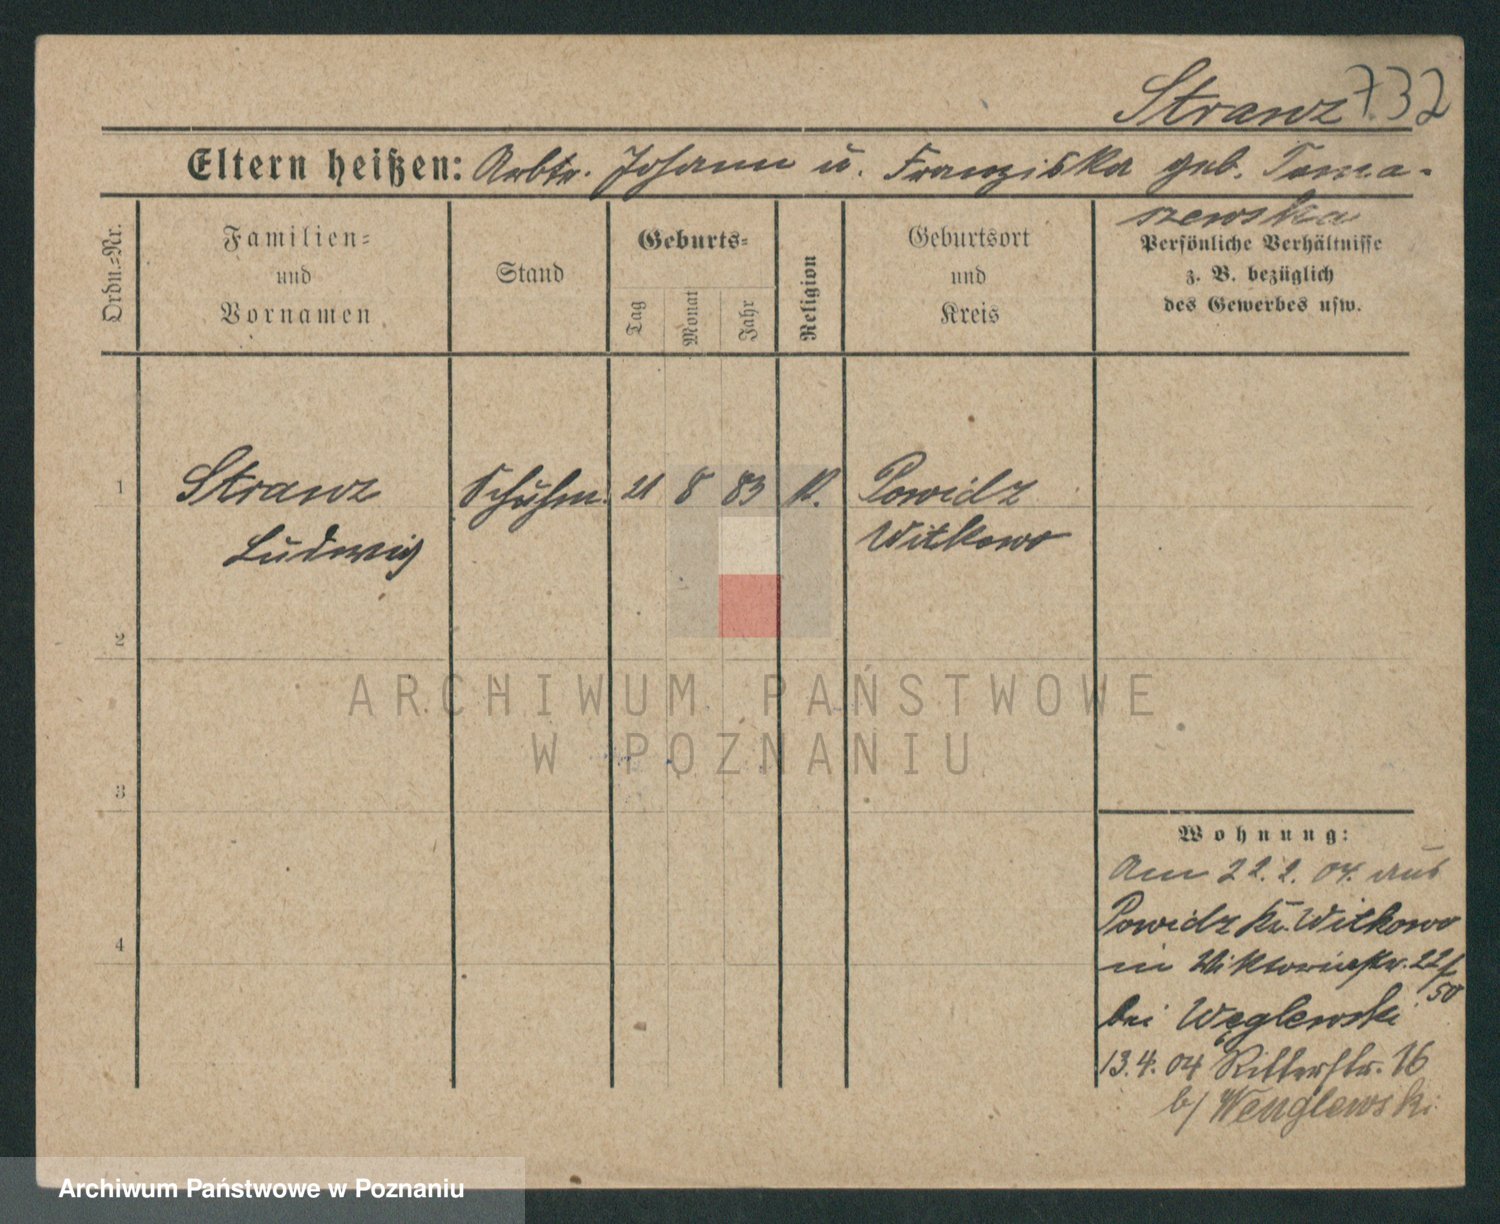 Stranz 732
Eltern heißen: Arbtr. Johann u. Franziska geb. Toma-
szewska
Ordn.-Nr.
Familien-
und
Vornamen
Stand
Geburts-
Tag
Monat
Jahr
Religion
Geburtsort
und
Kreis
Persönliche Verhältnisse
z. B. bezüglich
des Gewerbes usw.
1 Stranz Schuhm. 21 8 83 K. Powidz
Ludwig Witkowo
2
ARCHIWUM PAŃSTWOWE
W POZNANIU
3
Wohnung:
Am 22.2.04. aus
Powidz Kr. Witkowo
4
in Viktoriastr. 22/
50
bei Węglewski
13.4.04 Ritterstr. 16
b/ Wenglewski
Archiwum Państwowe w Poznaniu